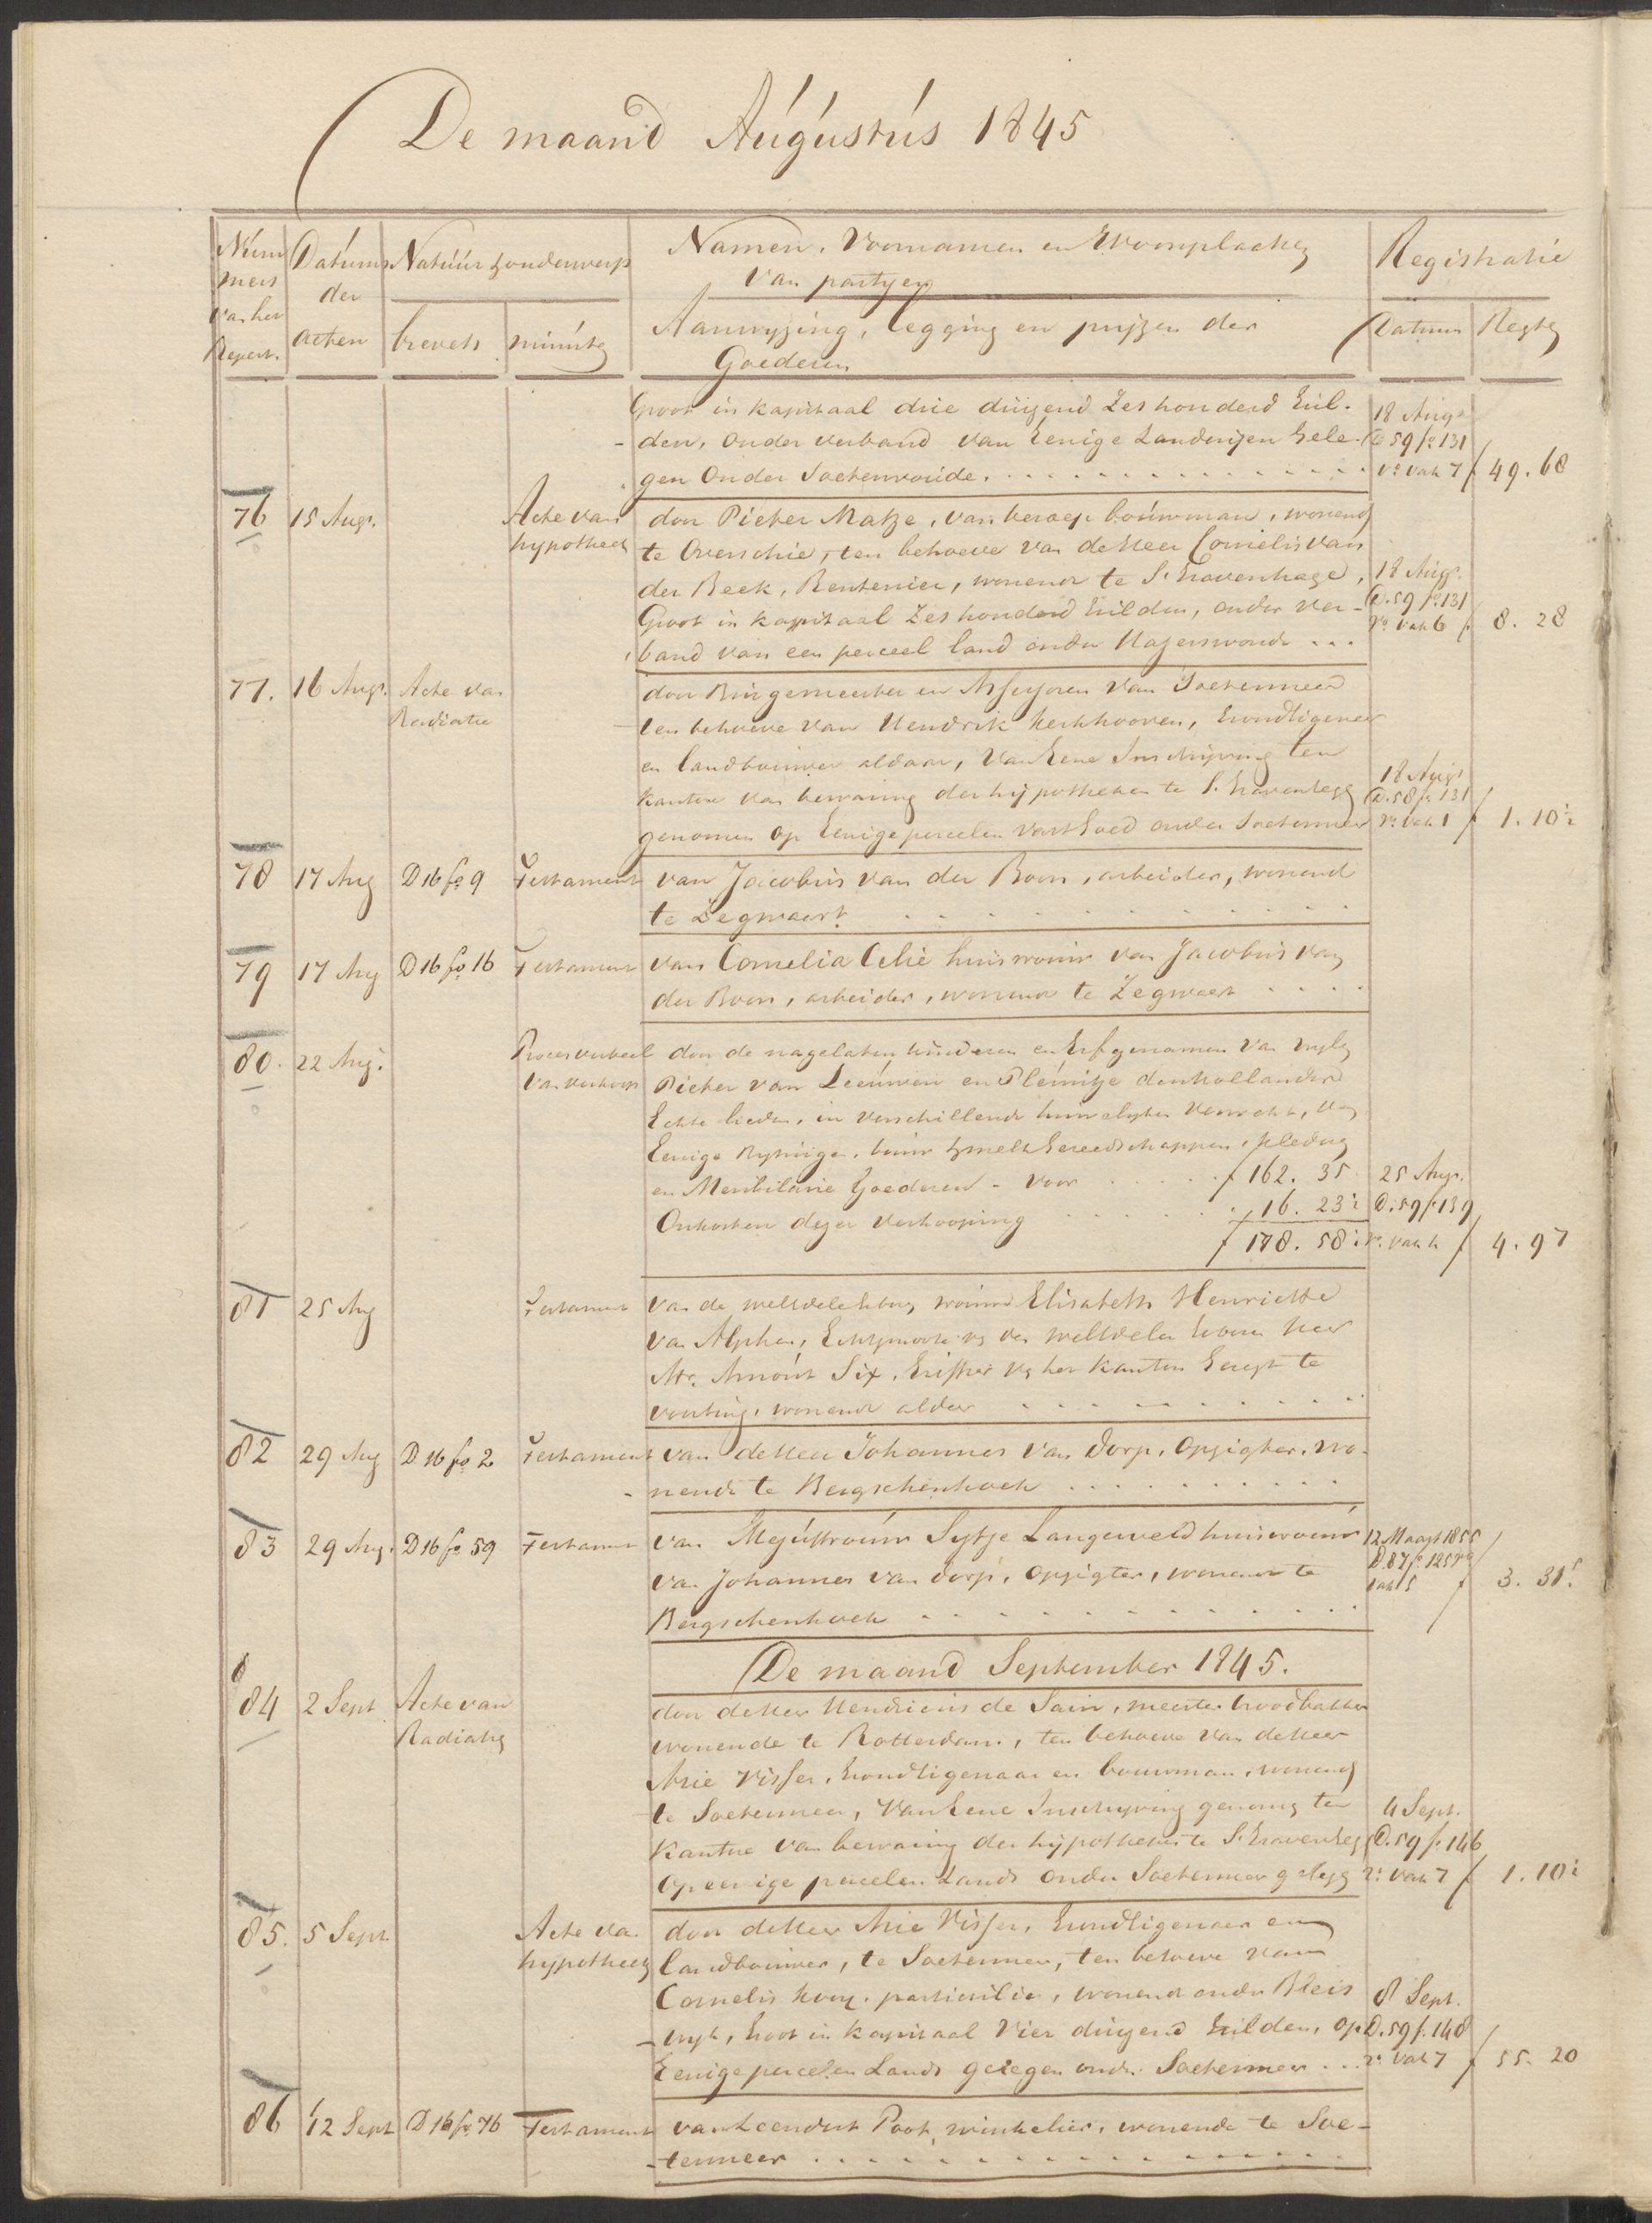 De maand Augustus 1845
Num Datums Natuur & onderwerp Namen, Voornamen en Woonplaatsen Registratie
mers der van partyen
van het acten brevets minuten Aanwyzing, legging en pryzen der Datum Regten
Repert. Goederen
Groot in kapitaal drie duizend Zes honderd Gul- 18 Augs
den, onder verband van Eenige Landeryen Gele- D 59 fo 131
gen onder Soetermeer ro vak 7 f 49. 68
76 15 Augs. Acte van door Pieter Matze, van beroep bouwman, wonend
hypotheek te Overschie, ten behoeve van de Heer Cornelis van
der Beek, Rentenier, wonend te S. Gravenhage, 18 Augs.
Groot in kapitaal Zes honderd Gulden, onder ver- D. 59 fo 131
band van een perceel land onder Hazerswoude ... ro vak 6 f 8. 28
77. 16 Augs. Acte van door Burgemeester en Assessoren van Soetermeer
Radiatie ten behoeve van Hendrik Kerkhooven, Grondeigenaar
en landbouwer aldaar, Van Eene Inschryving ten
kantore van bewaring der hypotheken te S. Gravenhage 18 Augs D. 58 fo 131
genomen op Eenige perceelen vast Goed onder Soetermeer ro vak 1 f 1. 10½
78 17 Aug D 16 fo 9 Testament van Jacobus van der Boon, arbeider, wonend
te Zegwaart
79 17 Aug D 16 fo 16 Testament van Cornelia Celie huisvrouw van Jacobus van
der Boon, arbeider, wonend te Zegwaart
80. 22 Aug. Proces verbaal door de nagelaten kinderen en Erfgenamen van wyle
van verkoop Pieter van Leeuwen en Pleuntje den Hollander
Echte lieden, in verschillende huwelyken verwekt, van
Eenige Rytuigen, bouw & melk Gereedschappen, kleding
en Meubilaire Goederen - voor f 162. 35 25 Aug.
Onkosten dezer verkooping 16. 23½ D. 59 fo 139
f 178. 58½ ro vak f 4. 97
81 25 Aug Testament van de welEdele Geboren vrouwe Elisabeth Henriette
van Alphen, Echtgenoote van den WelEdelen Geboren Heer
Mr. Arnout Six, Griffier van het Kanton Geregt te
Voorburg, wonend aldaar
82 29 Aug D 16 fo 2 Testament van de Heer Johannes van Dorp, Opzigter, wo-
nende te Bergschenhoek
83 29 Aug. D 16 fo 59 Testament van Mejuffrouw Sytje Langeveld huisvrouw 12 Maart 1855
van Johannes van Dorp, Opzigter, wonend te D. 87 fo 125 vo
Bergschenhoek vak 5 f 3. 31.5
De maand September 1845.
84 2 Sept Acte van door de Heer Hendricus de Sain, meester broodbakker
Radiatie wonende te Rotterdam, ten behoeve van de Heer
Arie Visser, Grondeigenaar en bouwman, wonend
te Soetermeer, Van Eene Inschryving genomen ten 4 Sept.
Kantore van bewaring der hypotheken te S. Gravenhage D. 59 fo 146
Op eenige perceelen Lands onder Soetermeer gelegen ro vak 7 f 1. 10½
85. 5 Sept. Acte van door de Heer Arie Visser, Grondeigenaar en
hypotheek landbouwer, te Soetermeer, ten behoeve van
Cornelis Kooy, particulier, wonend onder Bleis 8 Sept.
-wyk, Groot in kapitaal Vier duizend Gulden, op D. 59 f. 148
Eenige perceelen Lands gelegen onder Soetermeer ... ro vak 7 f 55. 20
86 12 Sept D 16 fo 76 Testament van Leendert Poot, winkelier, wonende te Soe-
-termeer